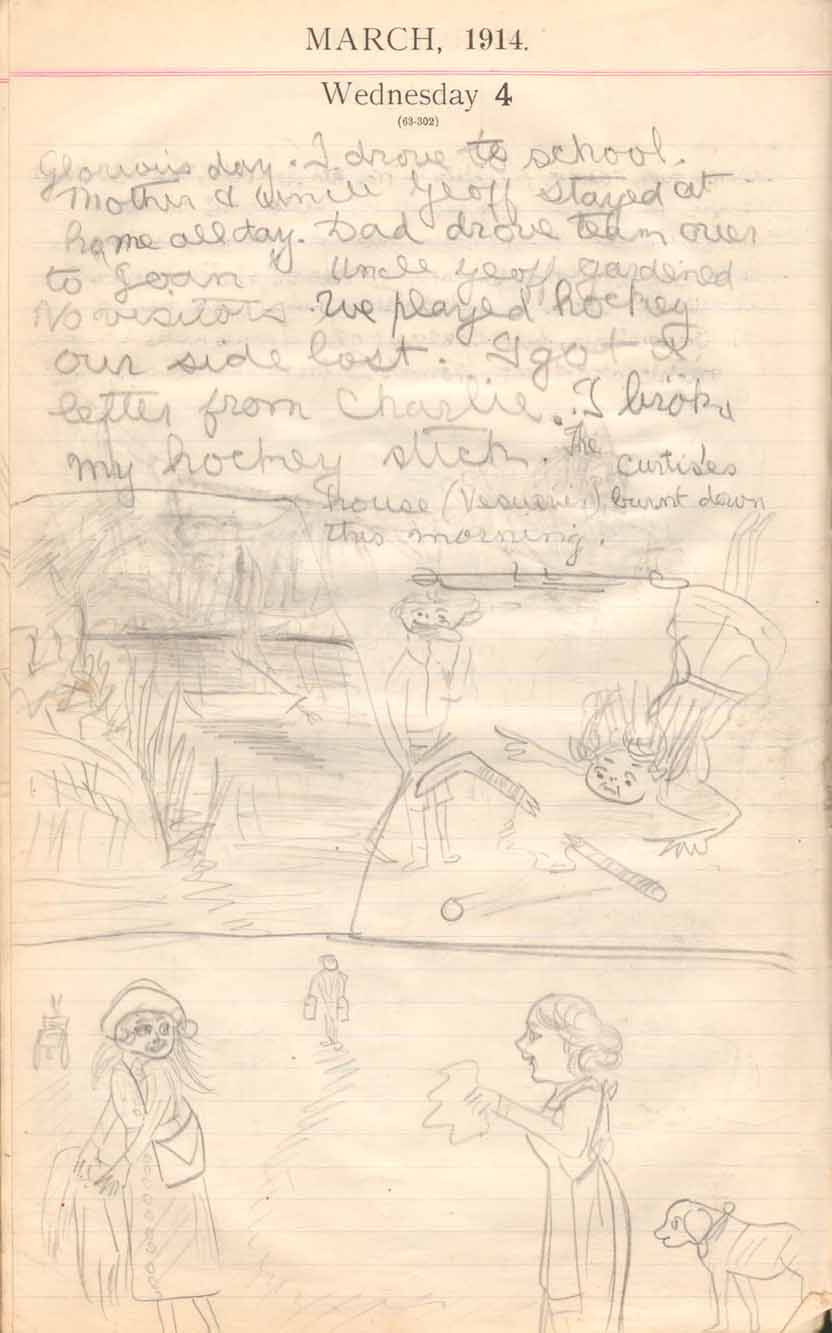 MARCH, 1914.
Wednesday 4
(63-302)
Glorious day. I drove to school.
Mother & Uncle Geoff stayed at
home all day. Dad drove team over
to Uncle Geoff gardened
No visitors. We played hockey
our side lost. I got a
letter from Charlie. I broke
my hockey stick. The Curtises
house burnt down
this morning.